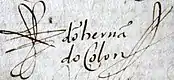 dõ herna
do Colon